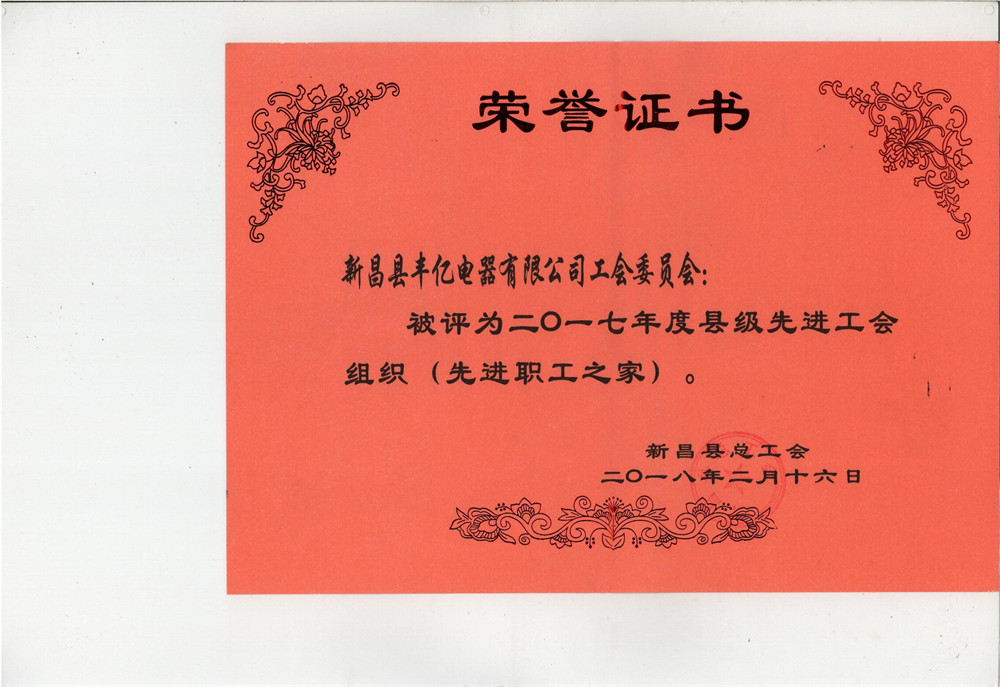 荣誉证书
新昌县丰亿电器有限公司工会委员会：
被评为二〇一七年度县级先进工会
组织（先进职工之家）。
新昌县总工会
二〇一八年二月十六日